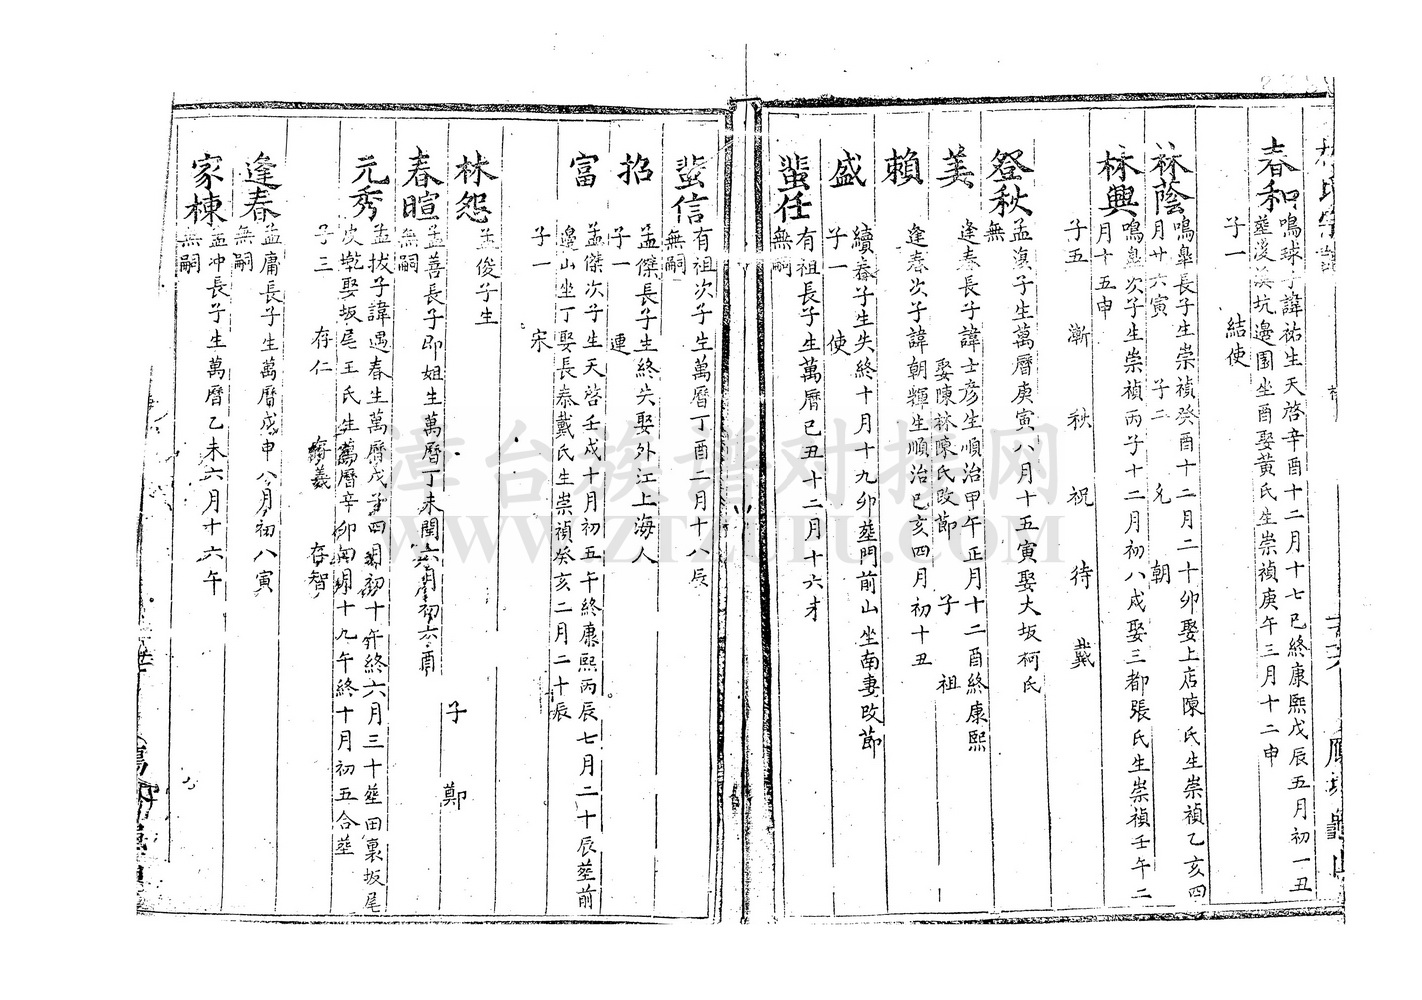 春和
鳴球子諱祐生天啓辛酉十二月十七巳終康熙戊辰五月初一丑
塟後溪坑邊園坐酉娶黄氏生崇禎庚午三月十二申
子一 結使
林蔭
鳴臯長子生崇禎癸酉十二月二十卯娶上店陳氏生崇禎乙亥四
月廿六寅 子二 允 朝
林興
鳴臯次子生崇禎丙子十二月初八戌娶三都張氏生崇禎壬午二
月十五申
子五 漸 秋 祝 待 戴
登秋
孟滇子生萬曆庚寅八月十五寅娶大坂柯氏
無
美
逢春長子諱士彦生順治甲午正月十二酉終康熙
娶陳林陳氏改節 子 祖
賴
逢春次子諱朝輝生順治己亥四月初十丑
盛
續春子生失終十月十九卯塟門前山坐南妻改節
子一 使
蜚任
有祖長子生萬曆己丑十二月十六才
無嗣
蜚信
有祖次子生萬曆丁酉二月十八辰
無嗣
招
孟傑長子生終失娶外江上海人
子一 連
富
孟傑次子生天啓壬戌十月初五午終康熙丙辰七月二十辰塟前
邊山坐丁娶長泰戴氏生崇禎癸亥二月二十辰
子一 宋
林怨
孟俊子生
子 鄭
春暄
孟善長子即姐生萬曆丁未閏六月初六酉
無嗣
元秀
孟拔子諱遇春生萬曆戊子四月初十午終六月三十塟田裏坂尾
次乾娶坂尾王氏生萬曆辛卯四月十九午終十月初五合塟
子三 存仁 存義 存智
逢春
孟庸長子生萬曆戊申八月初八寅
無嗣
家棟
孟冲長子生萬曆乙未六月十六午
無嗣
漳台族谱对接网
WWW.ZTZUPU.COM